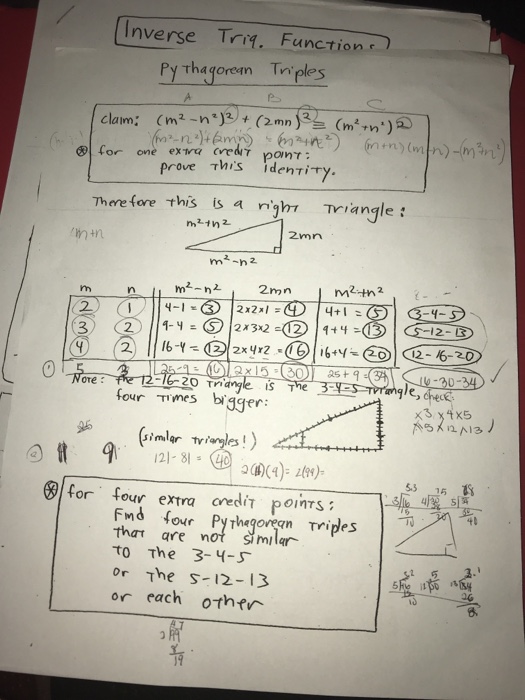 Inverse Trig. Functions
Pythagorean Triples
A B C
claim: (m²-n²)² + (2mn)² = (m²+n²)²
(m²-n²)+(2mn) = (m²+n²) (m+n)(m+n)-(m²+n²)
⊛ for one extra credit point:
prove this identity.
Therefore this is a right triangle:
m+n
m²+n²
2mn
m²-n²
m n m²-n² 2mn m²+n²
2 1 4-1=3 2x2x1=4 4+1=5 3-4-5
3 2 9-4=5 2x3x2=12 9+4=13 5-12-13
4 2 16-4=12 2x4x2=16 16+4=20 12-16-20
① 5 3 25-9=16 2x15=30 25+9=34 16-30-34 ✓
Note: the 12-16-20 triangle is the 3-4-5 triangle,
four times bigger:
check:
x3 x4 x5
x5 x12 x13
(similar triangles!)
② 11 9 121-81=40 2(11)(9)=2(99)=
⊛ for four extra credit points:
Find four Pythagorean triples
that are not similar
to the 3-4-5
or the 5-12-13
or each other